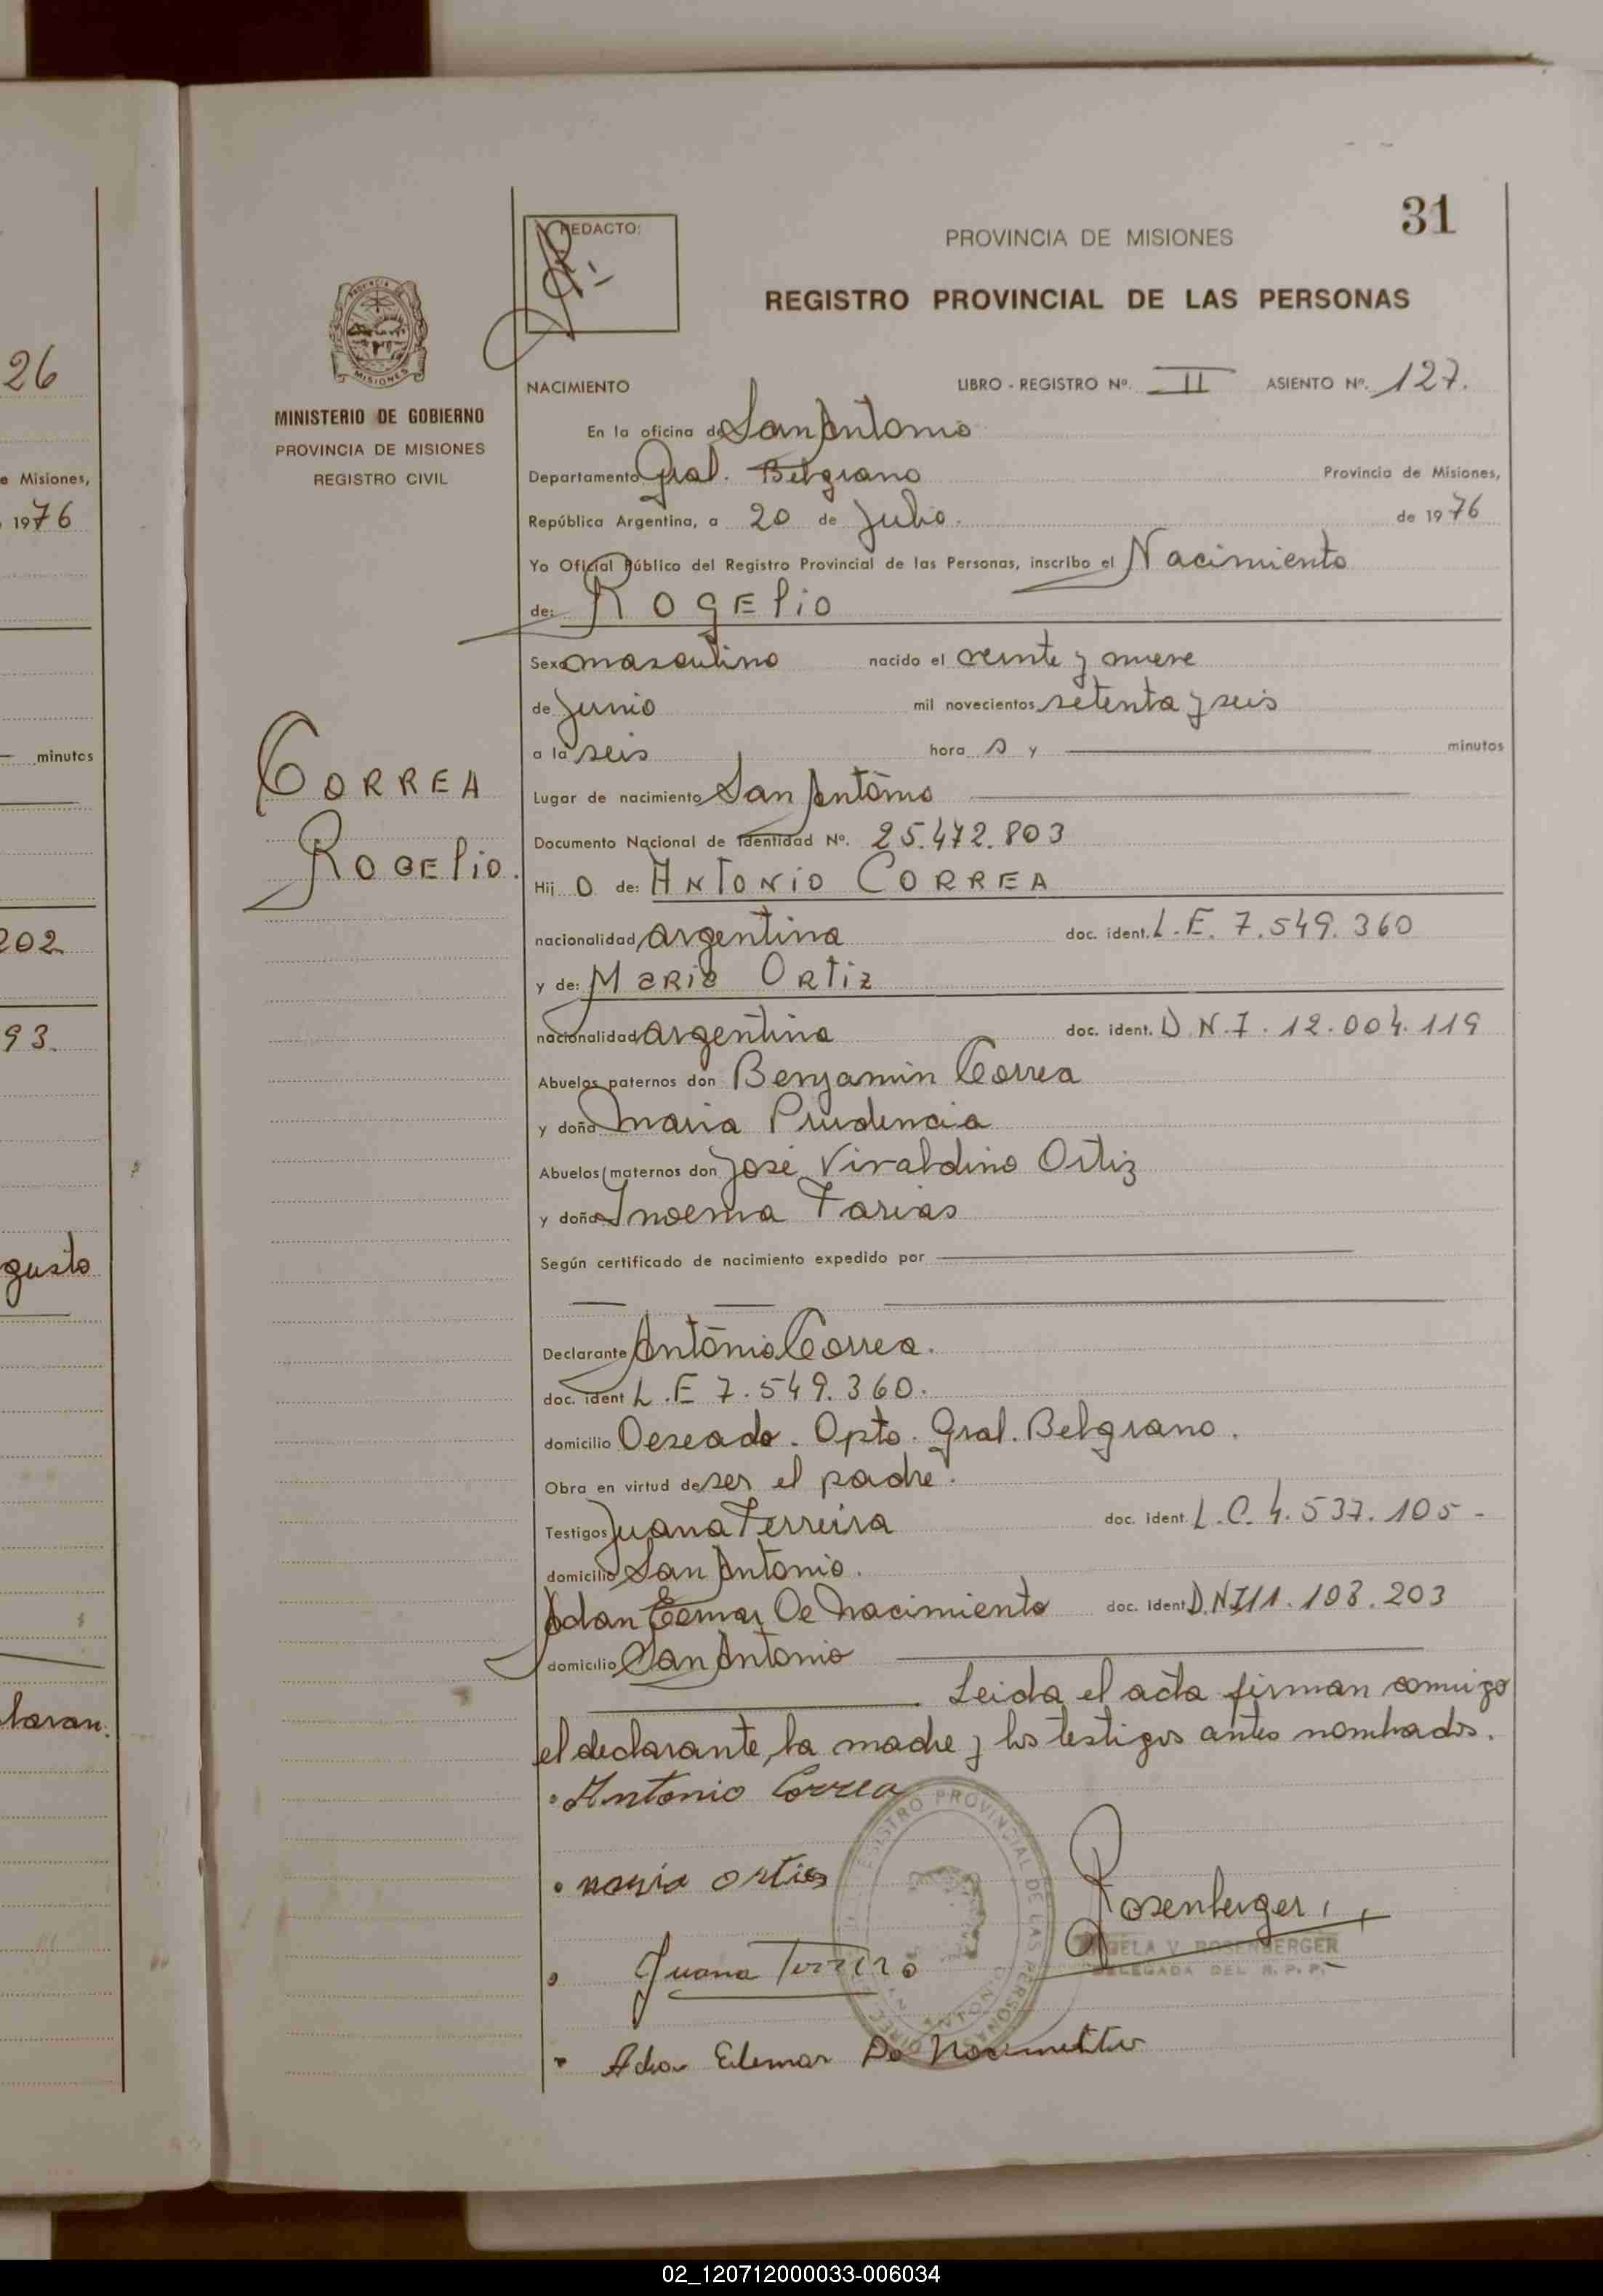 26
e Misiones,
1976
minutos
202
93.
gusto
laran.
REDACTO:
PROVINCIA DE MISIONES
31
REGISTRO PROVINCIAL DE LAS PERSONAS
MISIONES
MINISTERIO DE GOBIERNO
PROVINCIA DE MISIONES
REGISTRO CIVIL
CORREA
ROGELIO.
NACIMIENTO LIBRO - REGISTRO Nº. II ASIENTO Nº. 127.
En la oficina de San Antonio
Departamento Gral. Belgrano Provincia de Misiones,
República Argentina, a 20 de Julio. de 1976
Yo Oficial Público del Registro Provincial de las Personas, inscribo el Nacimiento
de: ROGELIO
Sexo masculino nacido el veinte y nueve
de Junio mil novecientos setenta y seis
a la seis hora s y minutos
Lugar de nacimiento San Antonio
Documento Nacional de Identidad Nº. 25.472.803
Hij o de: ANTONIO CORREA
nacionalidad argentina doc. ident. L.E. 7.549.360
y de: MARIA ORTIZ
nacionalidad argentina doc. ident. D.N.I. 12.004.119
Abuelos paternos don Benjamin Correa
y doña Maria Prudencia
Abuelos maternos don José Viraldino Ortiz
y doña Inoema Farias
Según certificado de nacimiento expedido por
Declarante Antonio Correa.
doc. ident L.E 7.549.360.
domicilio Deseado. Dpto. Gral. Belgrano.
Obra en virtud de ser el padre.
Testigos Juana Ferreira doc. ident. L.C. 4.537.105-
domicilio San Antonio.
Adan Edemar De Nacimiento doc. ident D.N.I 11.103.203
domicilio San Antonio
Leida el acta firman conmigo
el declarante, la madre y los testigos antes nombrados.
Antonio Correa
maria ortiz
Rosenberger
ANGELA V. ROSENBERGER
DELEGADA DEL R. P. P.
REGISTRO PROVINCIAL DE LAS PERSONAS
Juana
Adan Edemar De
02_120712000033-006034